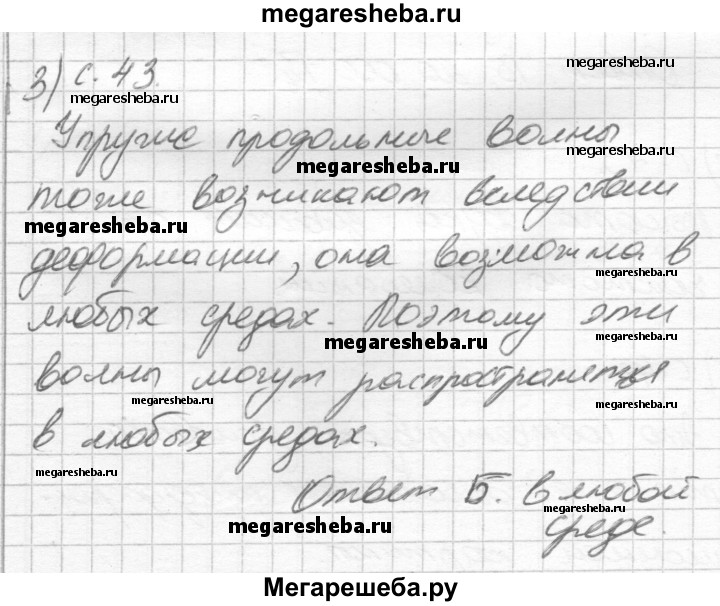 megaresheba.ru
3) с. 43.
megaresheba.ru
megaresheba.ru
Упругие продольные волны
megaresheba.ru
megaresheba.ru
тоже возникают вследствии
megaresheba.ru
деформации, она возможна в
megaresheba.ru
любых средах. Поэтому эти
megaresheba.ru
волны могут распространятся
megaresheba.ru
megaresheba.ru
в любых средах.
megaresheba.ru
Ответ Б. в любой
megaresheba.ru
megaresheba.ru
среде.
Мегарешеба.ру